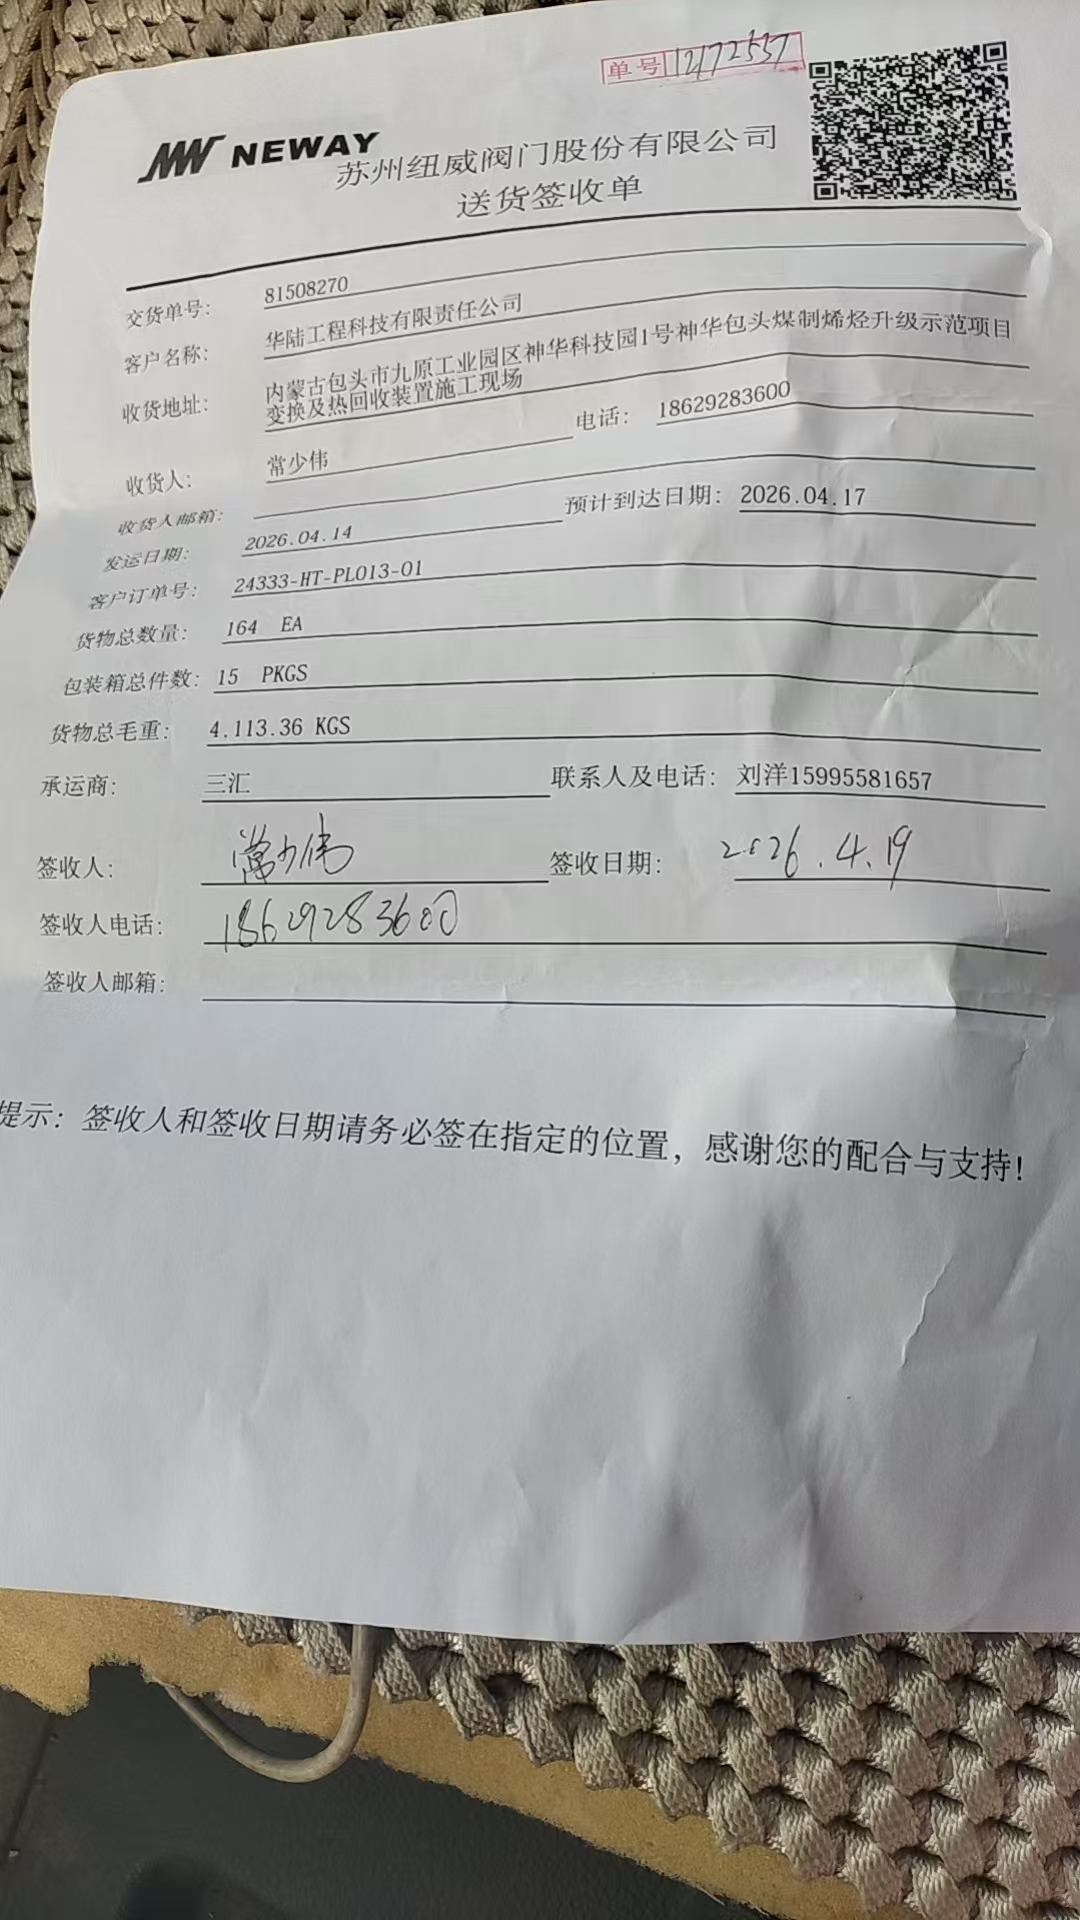 单号 12172557
NEWAY
苏州纽威阀门股份有限公司
送货签收单
交货单号: 81508270
客户名称: 华陆工程科技有限责任公司
收货地址: 内蒙古包头市九原工业园区神华科技园1号神华包头煤制烯烃升级示范项目
变换及热回收装置施工现场
收货人: 常少伟 电话: 18629283600
收货人邮箱:
发运日期: 2026.04.14 预计到达日期: 2026.04.17
客户订单号: 24333-HT-PL013-01
货物总数量: 164 EA
包装箱总件数: 15 PKGS
货物总毛重: 4,113.36 KGS
承运商: 三汇 联系人及电话: 刘洋15995581657
签收人: 常少伟 签收日期: 2026.4.19
签收人电话: 18629283600
签收人邮箱:
提示: 签收人和签收日期请务必签在指定的位置, 感谢您的配合与支持!